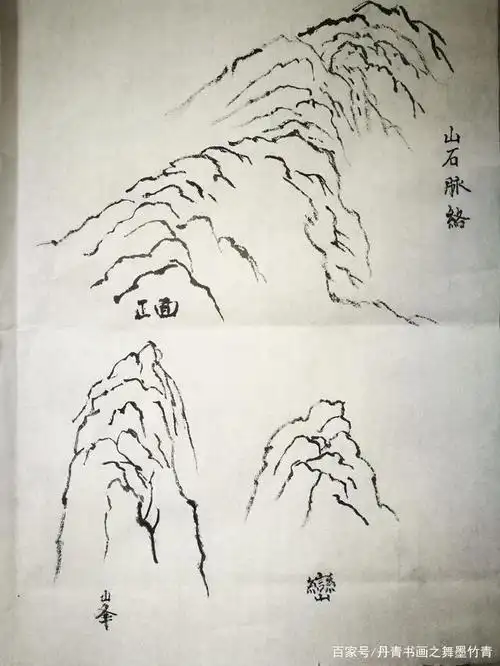 山石脉络
正面
峰
峦
百家号/丹青书画之舞墨竹青